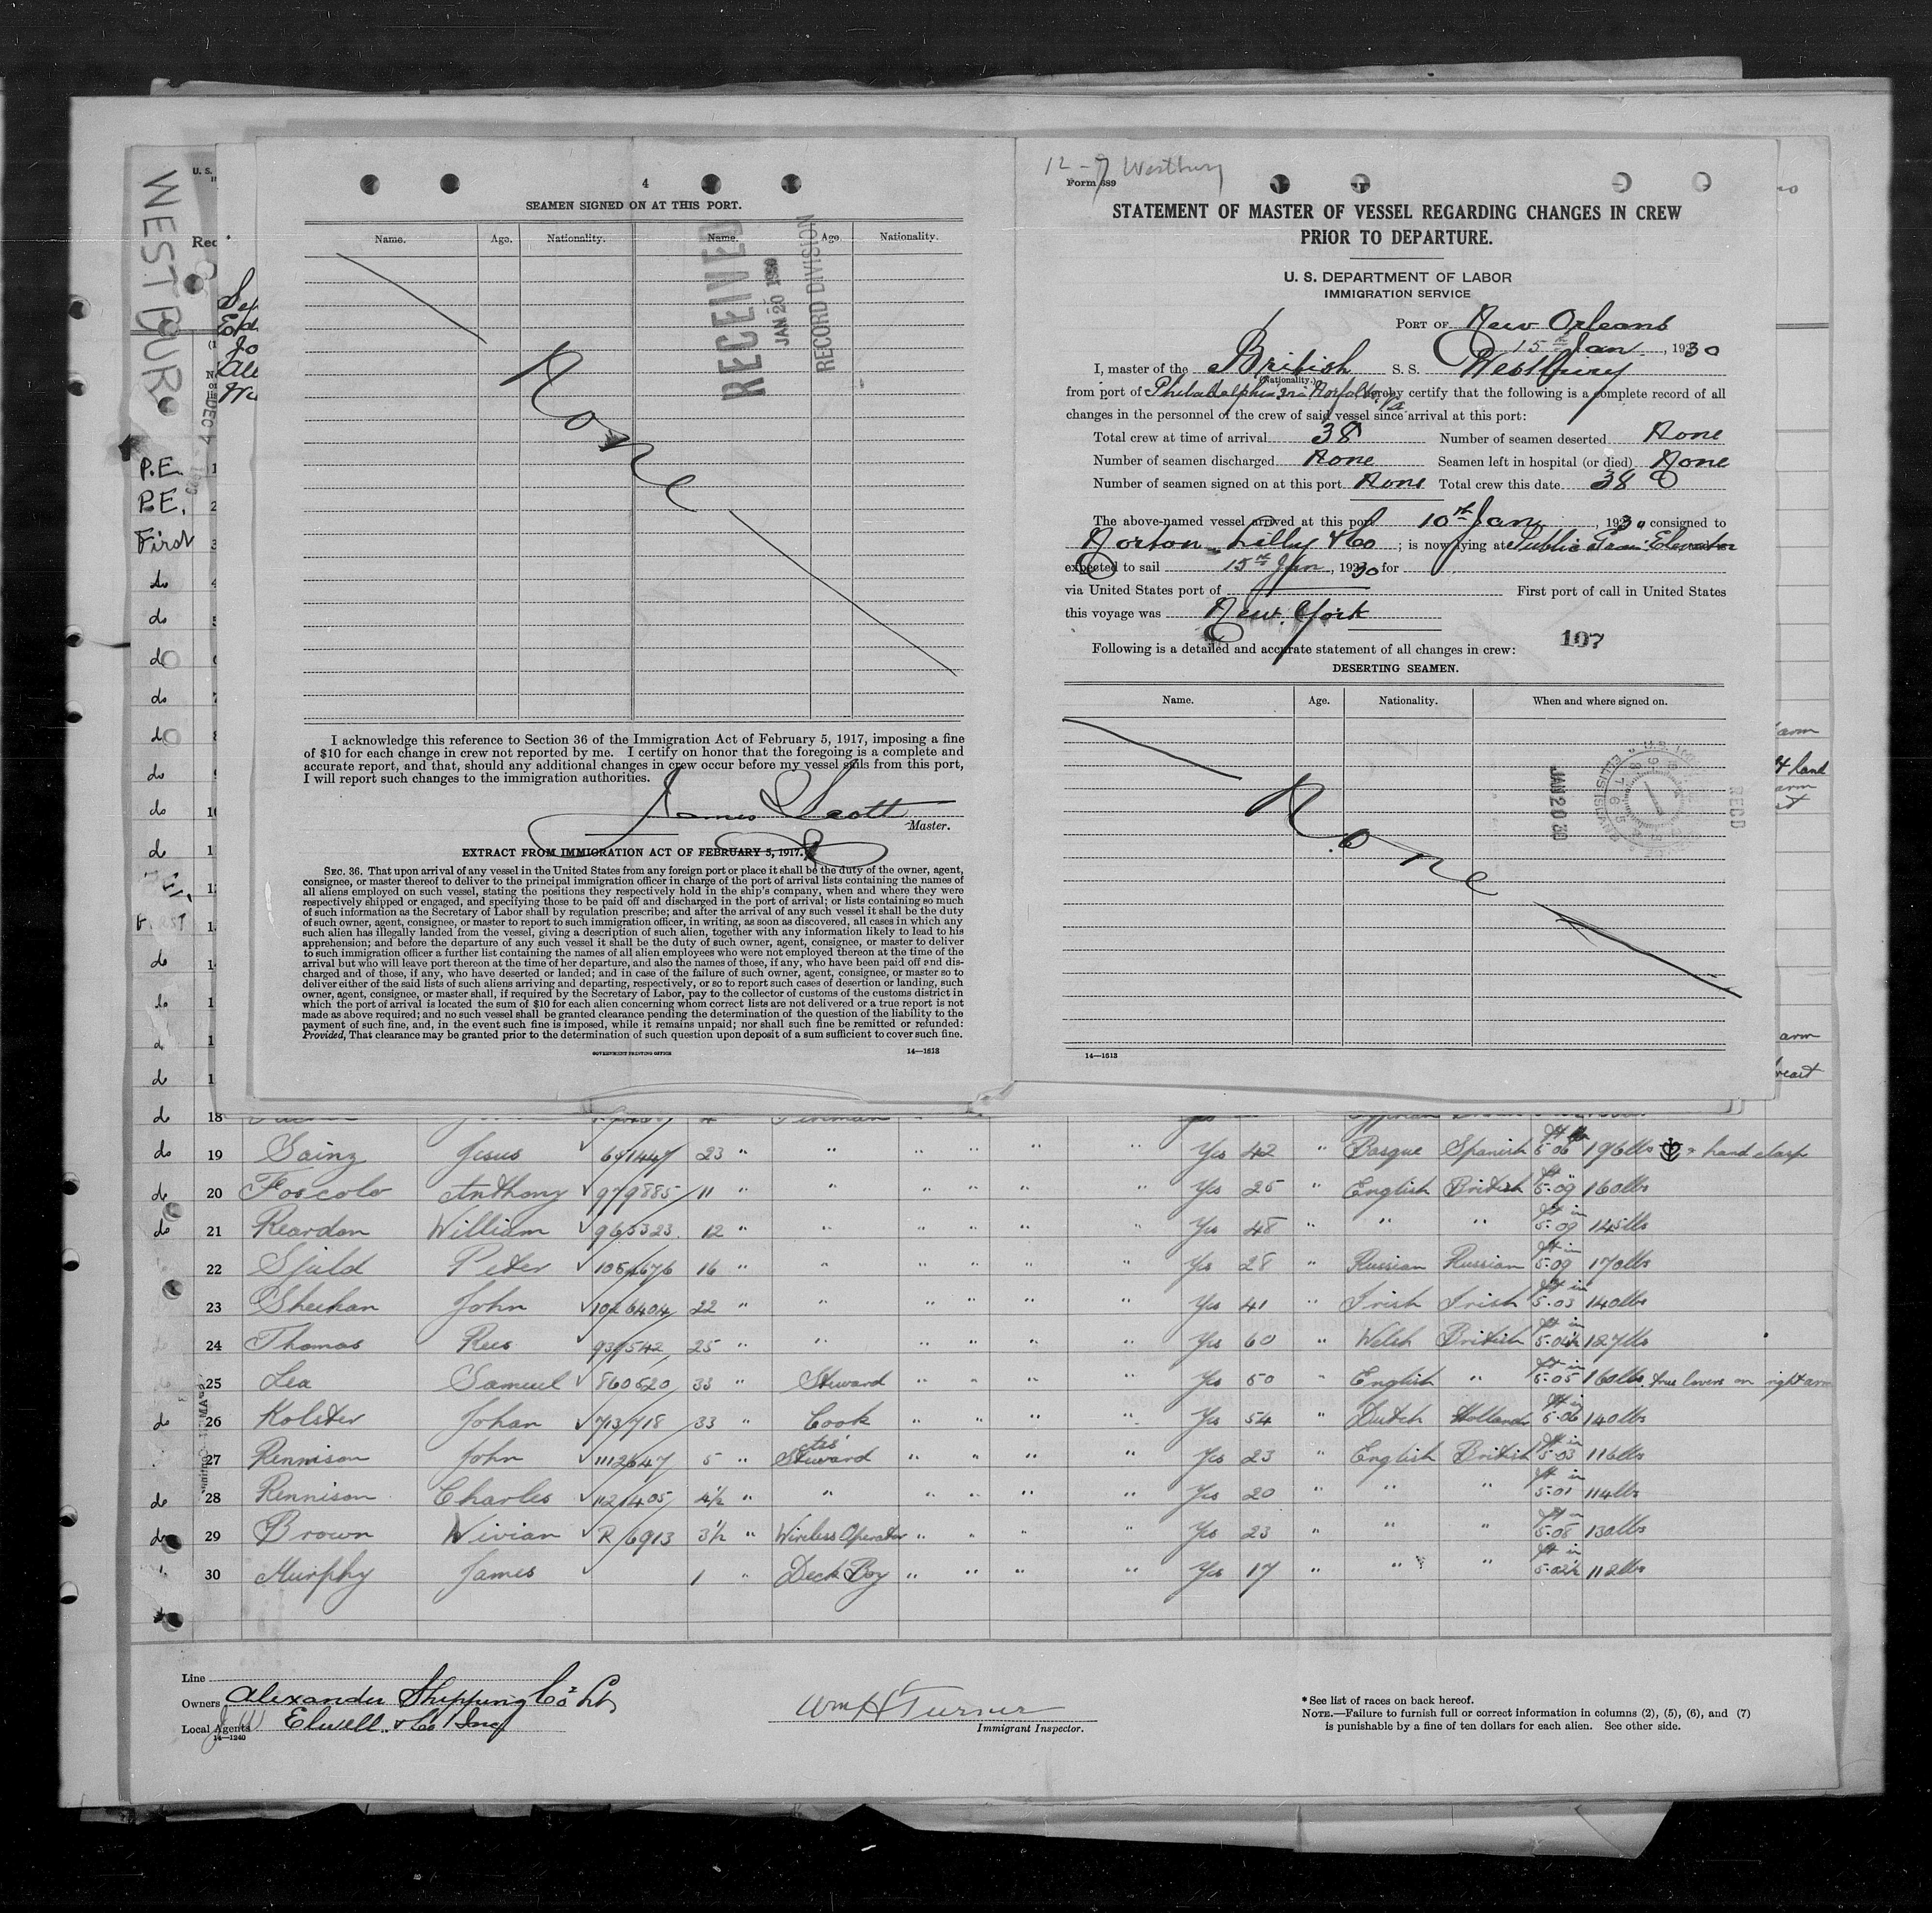 WESTBURY
U. S.
Rec
P.E.
P.E.
First
do
do
do
do
do
do
do
do
4
SEAMEN SIGNED ON AT THIS PORT.
Name. Age. Nationality. Name. Age. Nationality.
RECEIVED
JAN 20 1930
RECORD DIVISION
None
I acknowledge this reference to Section 36 of the Immigration Act of February 5, 1917, imposing a fine
of $10 for each change in crew not reported by me. I certify on honor that the foregoing is a complete and
accurate report, and that, should any additional changes in crew occur before my vessel sails from this port,
I will report such changes to the immigration authorities.
James Scott
Master.
EXTRACT FROM IMMIGRATION ACT OF FEBRUARY 5, 1917.
SEC. 36. That upon arrival of any vessel in the United States from any foreign port or place it shall be the duty of the owner, agent,
consignee, or master thereof to deliver to the principal immigration officer in charge of the port of arrival lists containing the names of
all aliens employed on such vessel, stating the positions they respectively hold in the ship's company, when and where they were
respectively shipped or engaged, and specifying those to be paid off and discharged in the port of arrival; or lists containing so much
of such information as the Secretary of Labor shall by regulation prescribe; and after the arrival of any such vessel it shall be the duty
of such owner, agent, consignee, or master to report to such immigration officer, in writing, as soon as discovered, all cases in which any
such alien has illegally landed from the vessel, giving a description of such alien, together with any information likely to lead to his
apprehension; and before the departure of any such vessel it shall be the duty of such owner, agent, consignee, or master to deliver
to such immigration officer a further list containing the names of all alien employees who were not employed thereon at the time of the
arrival but who will leave port thereon at the time of her departure, and also the names of those, if any, who have been paid off and dis-
charged and of those, if any, who have deserted or landed; and in case of the failure of such owner, agent, consignee, or master so to
deliver either of the said lists of such aliens arriving and departing, respectively, or so to report such cases of desertion or landing, such
owner, agent, consignee, or master shall, if required by the Secretary of Labor, pay to the collector of customs of the customs district in
which the port of arrival is located the sum of $10 for each alien concerning whom correct lists are not delivered or a true report is not
made as above required; and no such vessel shall be granted clearance pending the determination of the question of the liability to the
payment of such fine, and, in the event such fine is imposed, while it remains unpaid; nor shall such fine be remitted or refunded:
Provided, That clearance may be granted prior to the determination of such question upon deposit of a sum sufficient to cover such fine.
GOVERNMENT PRINTING OFFICE 14—1613
12-7 Westbury
Form 689
STATEMENT OF MASTER OF VESSEL REGARDING CHANGES IN CREW
PRIOR TO DEPARTURE.
U. S. DEPARTMENT OF LABOR
IMMIGRATION SERVICE
PORT OF New Orleans
15th Jan., 1930
I, master of the British S. S. Westbury
(Nationality.)
from port of Philadelphia via Norfolk Va hereby certify that the following is a complete record of all
changes in the personnel of the crew of said vessel since arrival at this port:
Total crew at time of arrival 38 Number of seamen deserted None
Number of seamen discharged None Seamen left in hospital (or died) None
Number of seamen signed on at this port None Total crew this date 38
The above-named vessel arrived at this port 10th Jan, 1930 consigned to
Norton Lilly & Co; is now lying at Public Grain Elevator
expected to sail 15th Jan, 1930 for
via United States port of First port of call in United States
this voyage was New York
107
Following is a detailed and accurate statement of all changes in crew:
DESERTING SEAMEN.
Name. Age. Nationality. When and where signed on.
JAN 20 30
RECD
None
14—1613
arm
arm
arm
do 18
do 19 Sainz Jesus 23 " " " " " " Yes 42 " Basque Spanish 5-06 196lbs hand clasp
do 20 Foscolo Anthony 979885 11 " " " " " " Yes 25 " English British 5-09 160lbs
do 21 Reardon William 965323 12 " " " " " " Yes 48 " " " 5-09 145lbs
22 Sjuld Peter 16 " " " " " " Yes 28 " Russian Russian 5-09 170lbs
23 Sheehan John 1026404 22 " " " " " " Yes 41 " Irish Irish 5-03 140lbs
24 Thomas Rees 939542 25 " " " " " " Yes 60 " Welsh British 5-04½ 127lbs
25 Lea Samuel 860520 33 " Steward " " " " Yes 50 " English " 5-05 160lbs true lovers on right arm
do 26 Kolster Johan 713718 33 " Cook " " " " Yes 54 " Dutch Holland 5-06 140lbs
27 Rennison John 1112647 5 " Steward " " " " Yes 23 " English British 5-03 116lbs
do 28 Rennison Charles 1121405 4½ " " " " " " Yes 20 " " " 5-01 114lbs
do 29 Brown Wivian R 6913 3½ " Wireless Operator " " " " Yes 23 " " " 5-08 130lbs
30 Murphy James 1 " Deck Boy " " " " Yes 17 " " " 5-02½ 112lbs
Line
Owners Alexander Shipping Co Ld
Local Agents J W Elwell & Co Inc
14—1240
Wm H Turner
Immigrant Inspector.
* See list of races on back hereof.
NOTE.—Failure to furnish full or correct information in columns (2), (5), (6), and (7)
is punishable by a fine of ten dollars for each alien. See other side.